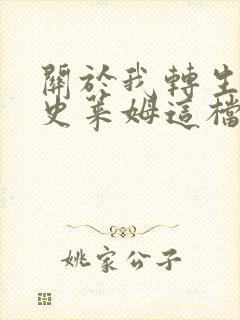 關於我轉生
史萊姆這檔
姚家公子